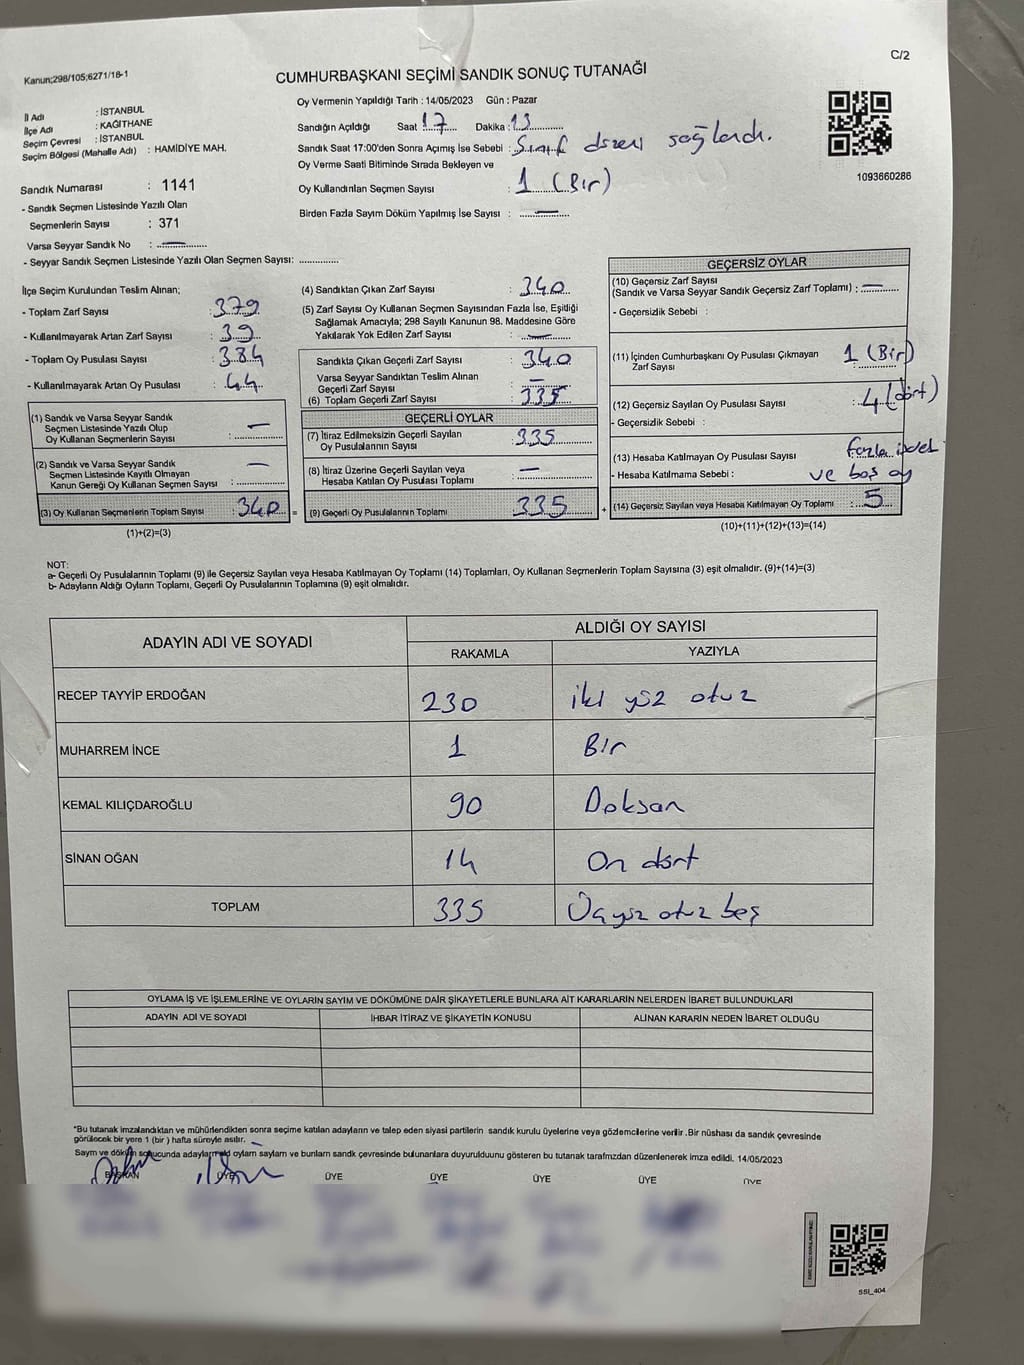 C/2
Kanun;298/105;6271/18-1
CUMHURBAŞKANI SEÇİMİ SANDIK SONUÇ TUTANAĞI
İl Adı : İSTANBUL
İlçe Adı : KAĞITHANE
Seçim Çevresi : İSTANBUL
Seçim Bölgesi (Mahalle Adı) : HAMİDİYE MAH.
Sandık Numarası : 1141
- Sandık Seçmen Listesinde Yazılı Olan
Seçmenlerin Sayısı : 371
Varsa Seyyar Sandık No : —
- Seyyar Sandık Seçmen Listesinde Yazılı Olan Seçmen Sayısı: ...............
Oy Vermenin Yapıldığı Tarih : 14/05/2023 Gün : Pazar
Sandığın Açıldığı Saat : 17 Dakika : 13
Sandık Saat 17:00'den Sonra Açımış İse Sebebi : Sınıf düzeni sağlandı.
Oy Verme Saati Bitiminde Sırada Bekleyen ve
Oy Kullandırılan Seçmen Sayısı : 1 (Bir)
Birden Fazla Sayım Döküm Yapılmış İse Sayısı : —
1093660286
İlçe Seçim Kurulundan Teslim Alınan;
- Toplam Zarf Sayısı : 379
- Kullanılmayarak Artan Zarf Sayısı : 39
- Toplam Oy Pusulası Sayısı : 384
- Kullanılmayarak Artan Oy Pusulası : 44
(1) Sandık ve Varsa Seyyar Sandık
Seçmen Listesinde Yazılı Olup
Oy Kullanan Seçmenlerin Sayısı : —
(2) Sandık ve Varsa Seyyar Sandık
Seçmen Listesinde Kayıtlı Olmayan
Kanun Gereği Oy Kullanan Seçmen Sayısı : —
(3) Oy Kullanan Seçmenlerin Toplam Sayısı : 340 =
(1)+(2)=(3)
(4) Sandıktan Çıkan Zarf Sayısı : 340
(5) Zarf Sayısı Oy Kullanan Seçmen Sayısından Fazla İse, Eşitliği
Sağlamak Amacıyla; 298 Sayılı Kanunun 98. Maddesine Göre
Yakılarak Yok Edilen Zarf Sayısı : —
Sandıkta Çıkan Geçerli Zarf Sayısı : 340
Varsa Seyyar Sandıktan Teslim Alınan
Geçerli Zarf Sayısı : —
(6) Toplam Geçerli Zarf Sayısı : 335
GEÇERLİ OYLAR
(7) İtiraz Edilmeksizin Geçerli Sayılan
Oy Pusulalarının Sayısı : 335
(8) İtiraz Üzerine Geçerli Sayılan veya
Hesaba Katılan Oy Pusulası Toplamı : —
(9) Geçerli Oy Pusulalarının Toplamı : 335 +
GEÇERSİZ OYLAR
(10) Geçersiz Zarf Sayısı
(Sandık ve Varsa Seyyar Sandık Geçersiz Zarf Toplamı) : —
- Geçersizlik Sebebi :
(11) İçinden Cumhurbaşkanı Oy Pusulası Çıkmayan
Zarf Sayısı : 1 (Bir)
(12) Geçersiz Sayılan Oy Pusulası Sayısı : 4 (dört)
- Geçersizlik Sebebi :
(13) Hesaba Katılmayan Oy Pusulası Sayısı : fazla
- Hesaba Katılmama Sebebi : ve boş oy
(14) Geçersiz Sayılan veya Hesaba Katılmayan Oy Toplamı : 5
(10)+(11)+(12)+(13)=(14)
NOT:
a- Geçerli Oy Pusulalarının Toplamı (9) ile Geçersiz Sayılan veya Hesaba Katılmayan Oy Toplamı (14) Toplamları, Oy Kullanan Seçmenlerin Toplam Sayısına (3) eşit olmalıdır. (9)+(14)=(3)
b- Adayların Aldığı Oyların Toplamı, Geçerli Oy Pusulalarının Toplamına (9) eşit olmalıdır.
ADAYIN ADI VE SOYADI
ALDIĞI OY SAYISI
RAKAMLA YAZIYLA
RECEP TAYYİP ERDOĞAN 230 iki yüz otuz
MUHARREM İNCE 1 Bir
KEMAL KILIÇDAROĞLU 90 Doksan
SİNAN OĞAN 14 On dört
TOPLAM 335 Üçyüz otuz beş
OYLAMA İŞ VE İŞLEMLERİNE VE OYLARIN SAYIM VE DÖKÜMÜNE DAİR ŞİKAYETLERLE BUNLARA AİT KARARLARIN NELERDEN İBARET BULUNDUKLARI
ADAYIN ADI VE SOYADI İHBAR İTİRAZ VE ŞİKAYETİN KONUSU ALINAN KARARIN NEDEN İBARET OLDUĞU
*Bu tutanak imzalandıktan ve mühürlendikten sonra seçime katılan adayların ve talep eden siyasi partilerin sandık kurulu üyelerine veya gözlemcilerine verilir .Bir nüshası da sandık çevresinde
görülecek bir yere 1 (bir ) hafta süreyle asılır.
Sayım ve döküm sonucunda adayların oyların sayısını ve bunların sandık çevresinde bulunanlara duyurulduğunu gösteren bu tutanak tarafımızdan düzenlenerek imza edildi. 14/05/2023
BAŞKAN ÜYE ÜYE ÜYE ÜYE ÜYE ÜYE
SSI_404